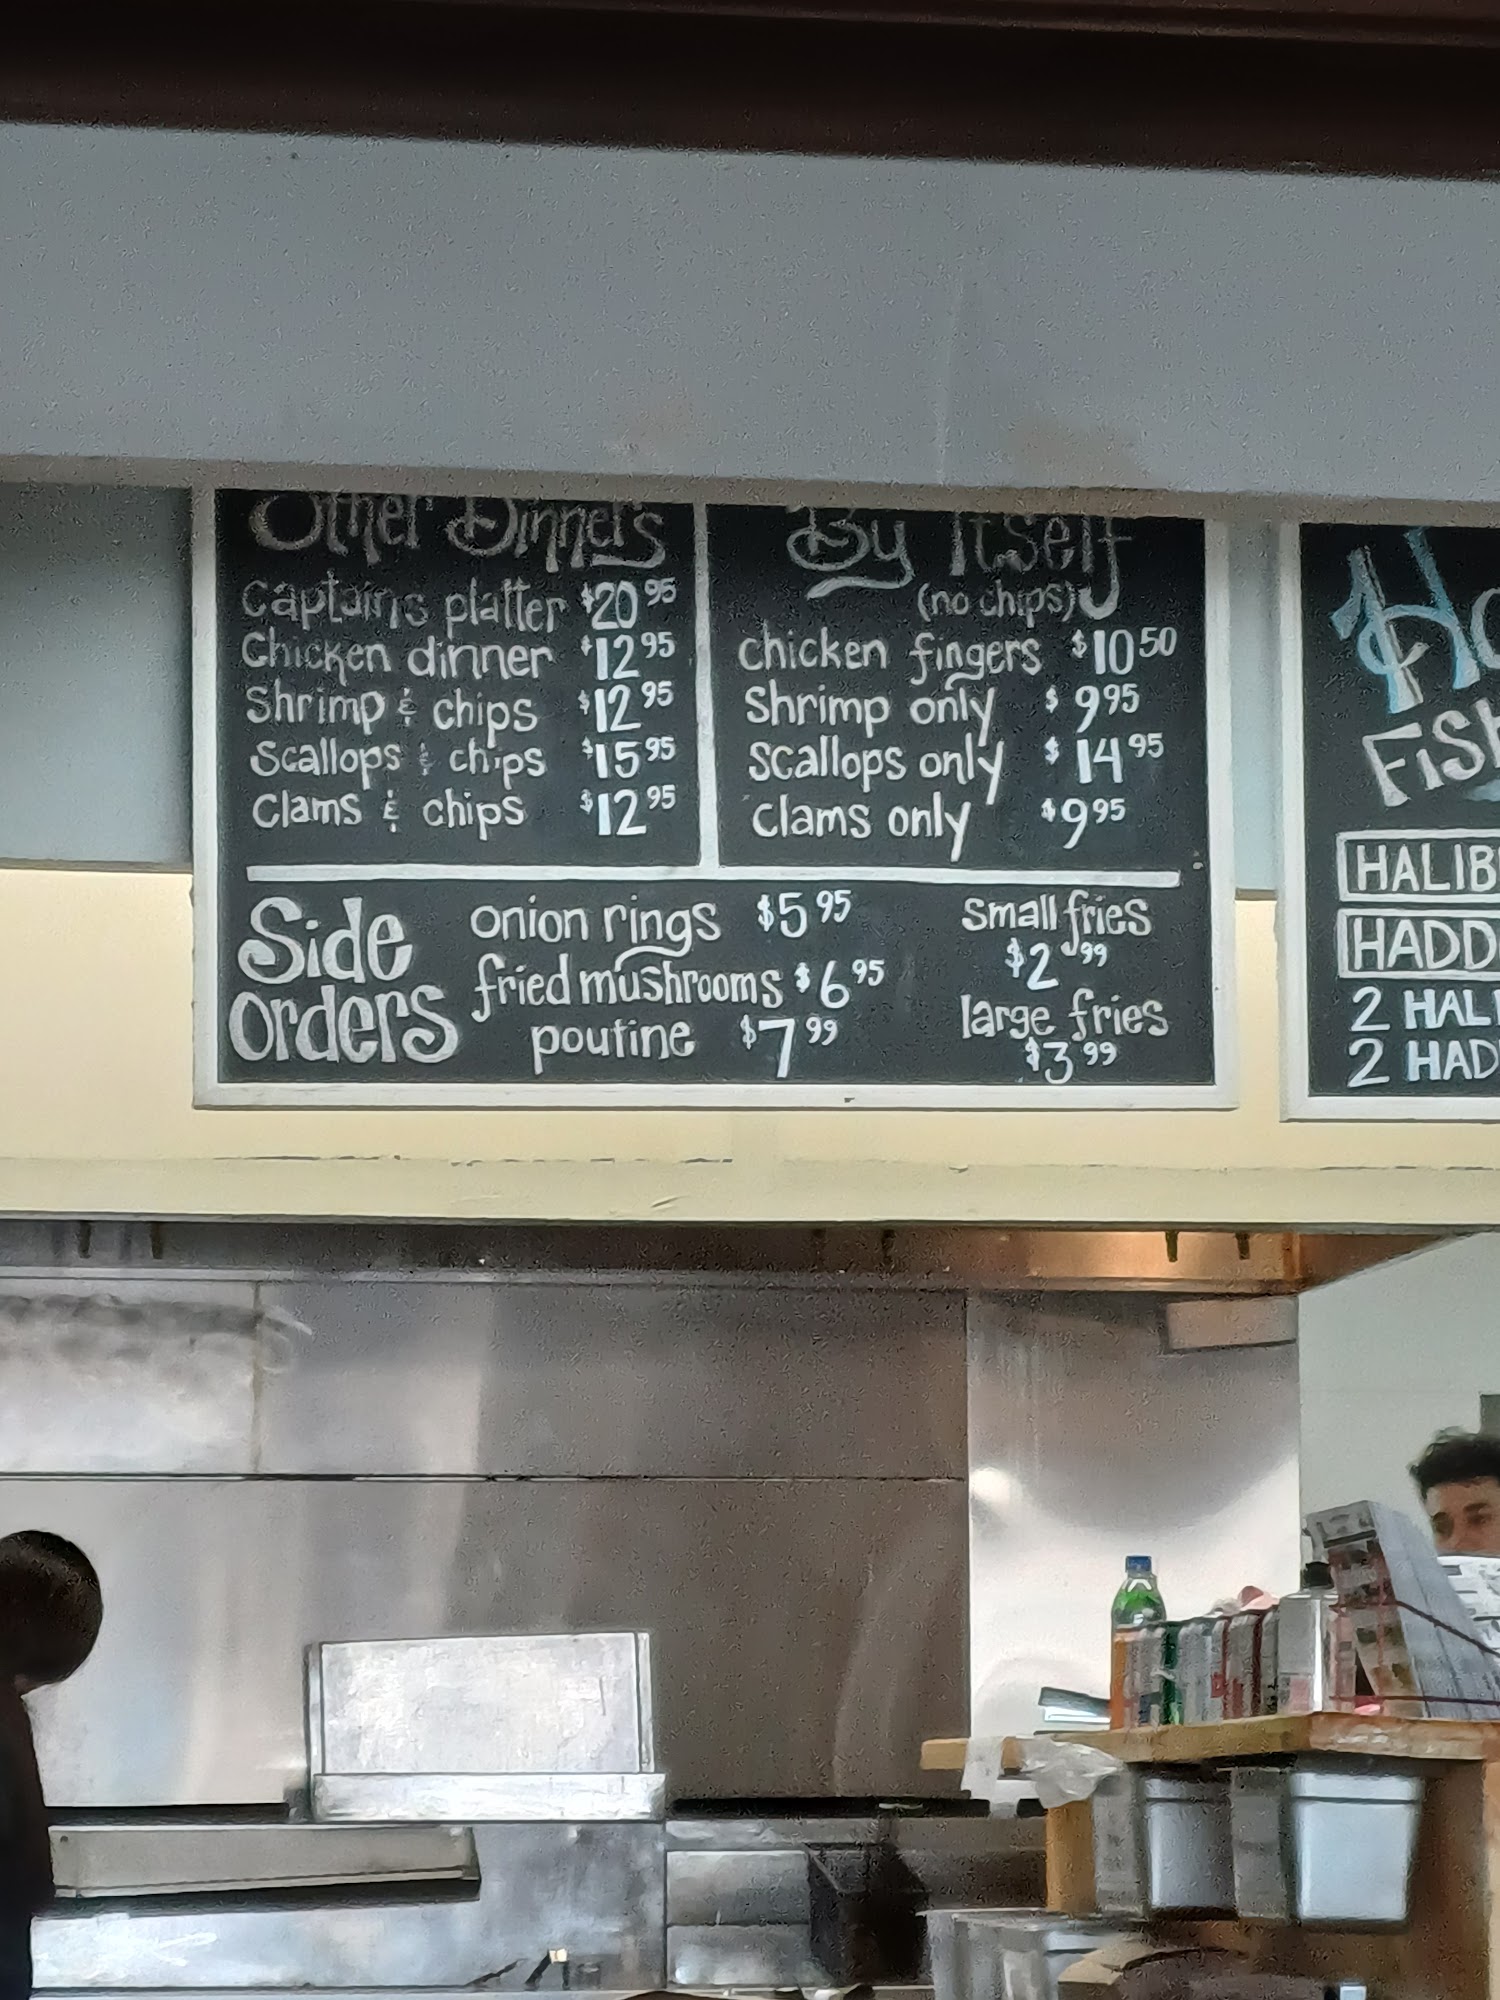 Other Dinners
Captains platter $20 95
Chicken dinner $12 95
Shrimp & chips $12 95
Scallops & chips $15 95
Clams & chips $12 95
By Itself
(no chips)
chicken fingers $10 50
Shrimp only $9 95
Scallops only $14 95
Clams only $9 95
Side
Orders
onion rings $5 95
fried mushrooms $6 95
poutine $7 99
Small fries
$2 99
large fries
$3 99
2 HAL
2 HAD